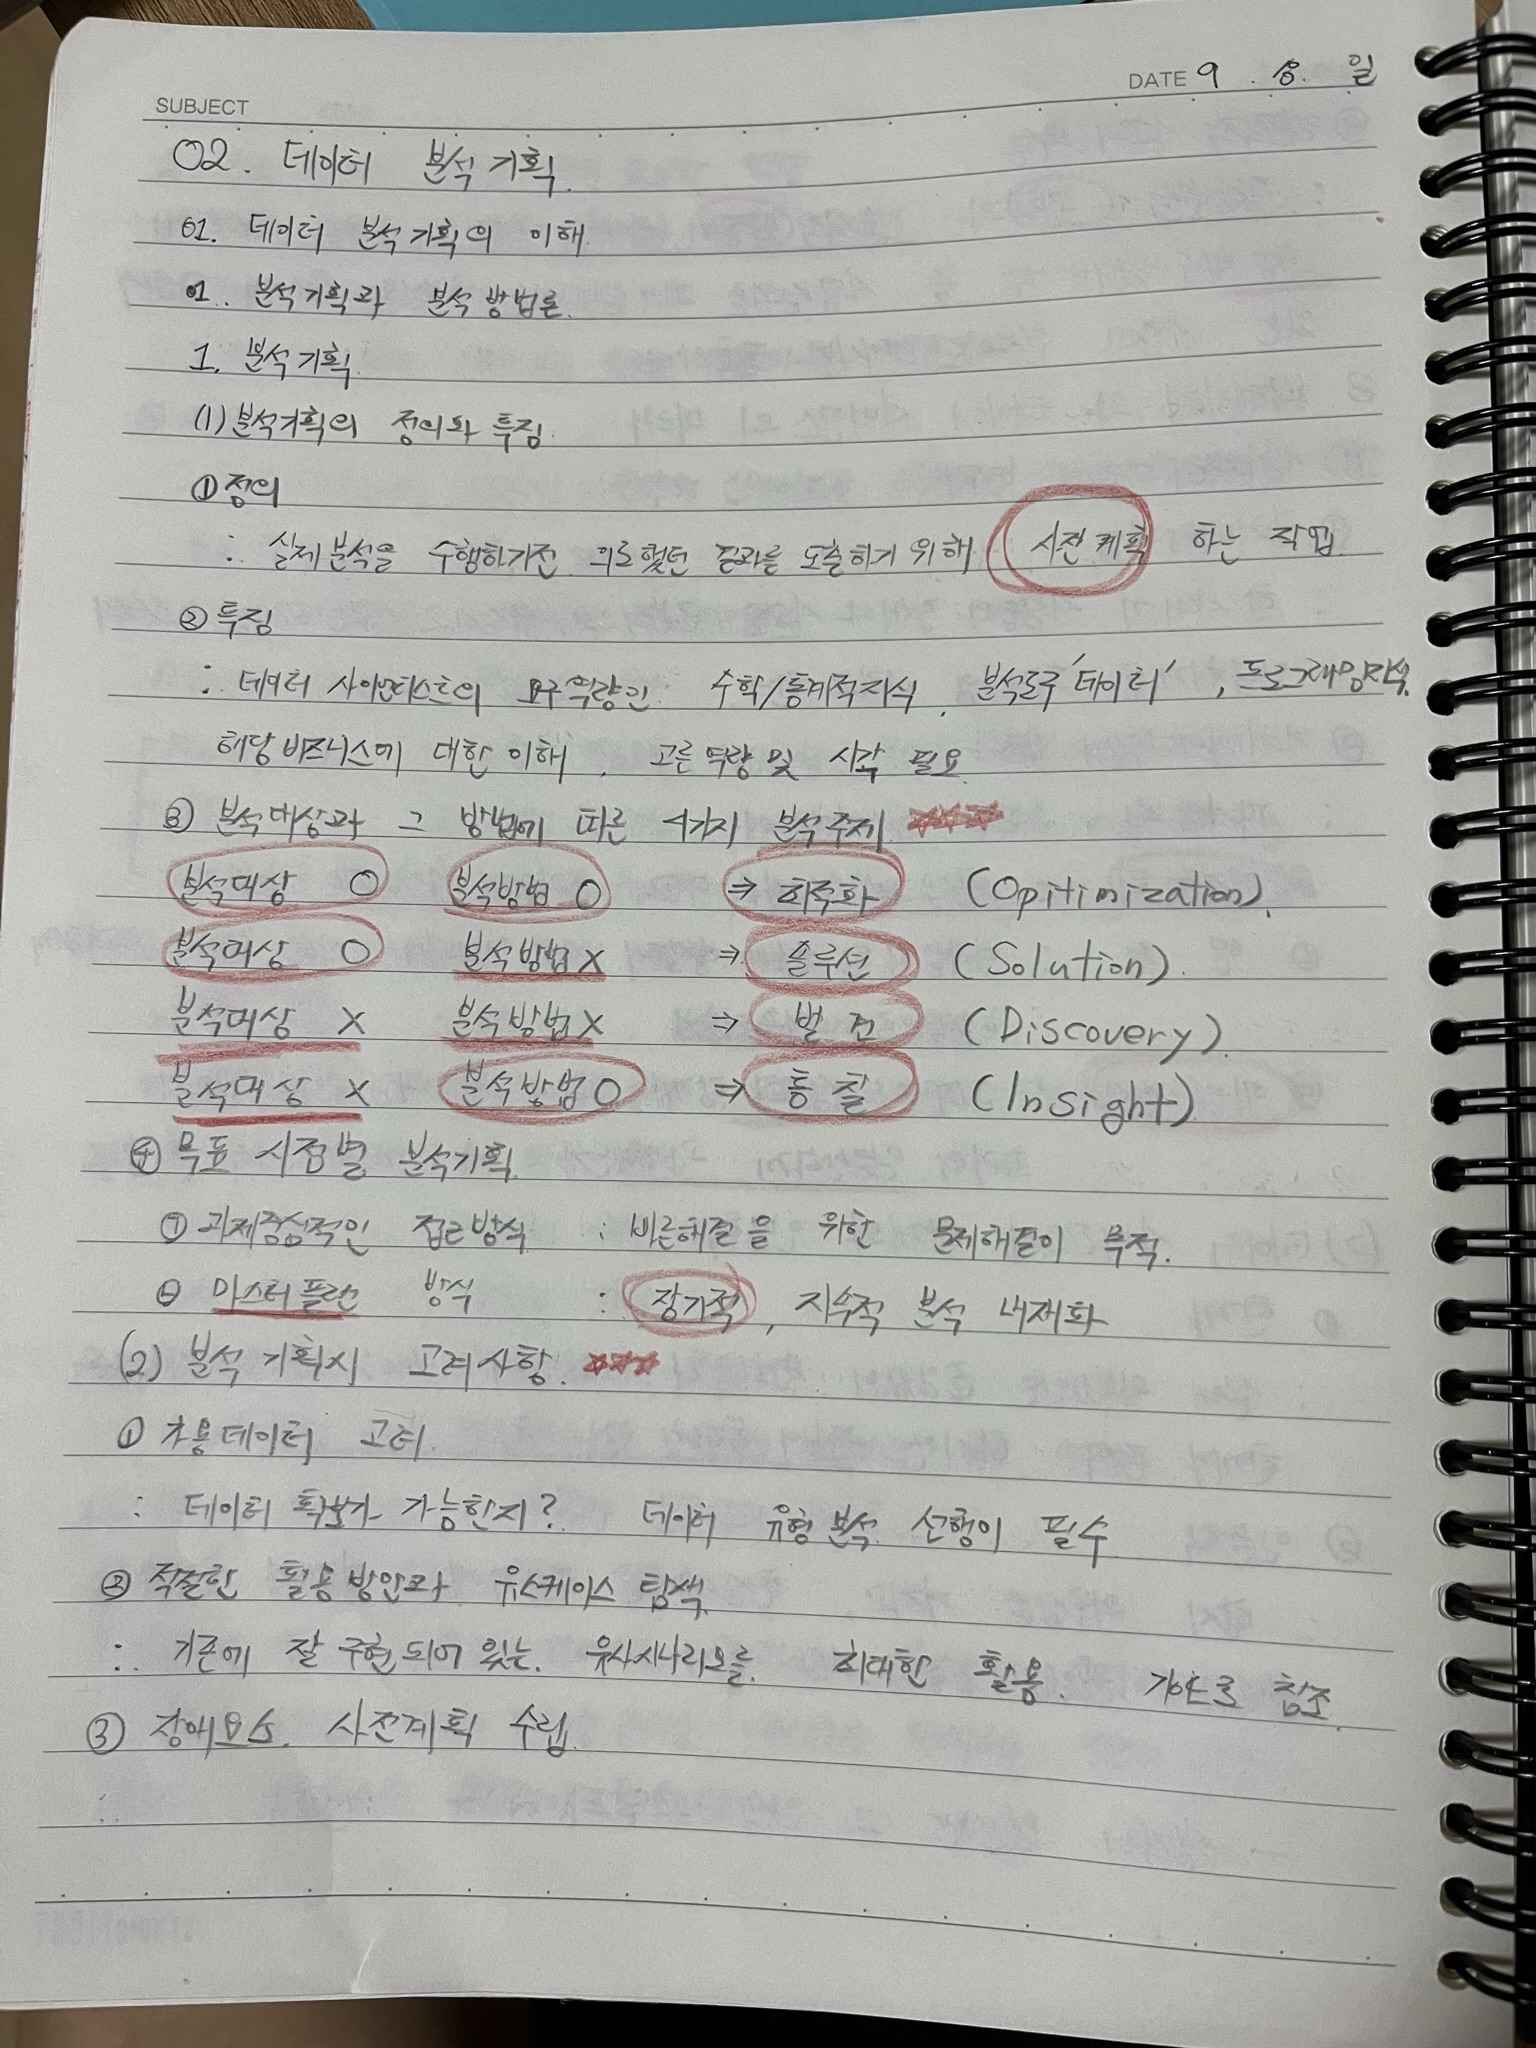 SUBJECT
DATE 9 . 8. 일
02. 데이터 분석기획.
01. 데이터 분석기획의 이해
01. 분석기획과 분석방법론.
1. 분석기획.
(1) 분석기획의 정의와 특징.
① 정의
: 실제분석을 수행하기전 의도했던 결과를 도출하기 위해 사전계획 하는 작업
② 특징
: 데이터 사이언티스트의 요구역량인 수학/통계적지식, 분석도구 '데이터', 프로그래밍지식.
해당비즈니스에 대한 이해, 고른역량 및 시각 필요
③ 분석대상과 그 방법에 따른 4가지 분석주제 ☆☆☆
분석대상 O 분석방법 O ⇒ 최적화 (Opitimization).
분석대상 O 분석방법 X ⇒ 솔루션 (Solution).
분석대상 X 분석방법 X ⇒ 발견 (Discovery).
분석대상 X 분석방법 O ⇒ 통찰 (Insight)
④ 목표 시점별 분석기획.
㉠ 과제중심적인 접근방식 : 빠른해결을 위한 문제해결이 목적.
㉡ 마스터플랜 방식 : 장기적, 지속적 분석 내재화
(2) 분석 기획시 고려사항. ☆☆☆
① 가용데이터 고려.
: 데이터 확보가 가능한지? 데이터 유형분석 선행이 필수
② 적절한 활용방안과 유스케이스 탐색.
: 기존에 잘 구현되어 있는. 유사시나리오를. 최대한 활용. 참조.
③ 장애요소. 사전계획 수립.
: